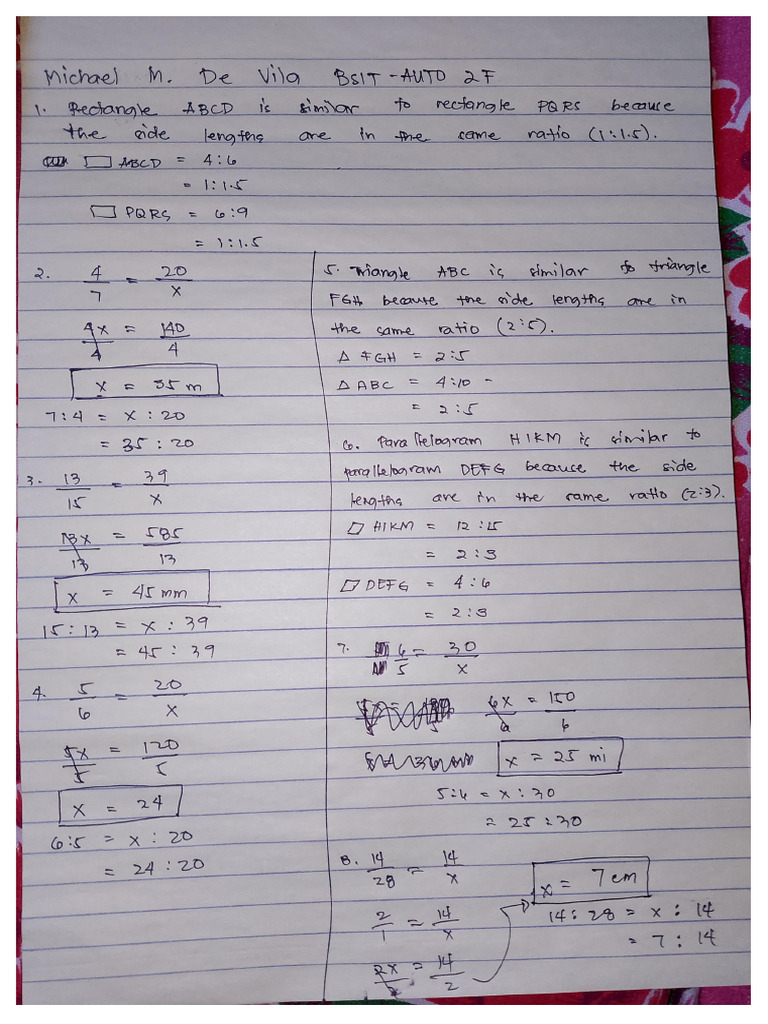 Michael M. De Vila BSIT - AUTO 2F
1. Rectangle ABCD is similar to rectangle PQRS because
the side lengths are in the same ratio (1:1.5).
▭ ABCD = 4:6
= 1:1.5
▭ PQRS = 6:9
= 1:1.5
2. 4/7 = 20/x
4x/4 = 140/4
x = 35 m
7:4 = x:20
= 35:20
3. 13/15 = 39/x
13x/13 = 585/13
x = 45 mm
15:13 = x:39
= 45:39
4. 5/6 = 20/x
5x/5 = 120/5
x = 24
6:5 = x:20
= 24:20
5. Triangle ABC is similar to triangle
FGH because the side lengths are in
the same ratio (2:5).
△ FGH = 2:5
△ ABC = 4:10
= 2:5
6. Parallelogram HIKM is similar to
parallelogram DEFG because the side
lengths are in the same ratio (2:3).
▱ HIKM = 12:15
= 2:3
▱ DEFG = 4:6
= 2:3
7. 6/5 = 30/x
6x/6 = 150/6
x = 25 mi
5:6 = x:30
= 25:30
8. 14/28 = 14/x
2/1 = 14/x
2x/2 = 14/2
x = 7 cm
14:28 = x:14
= 7:14